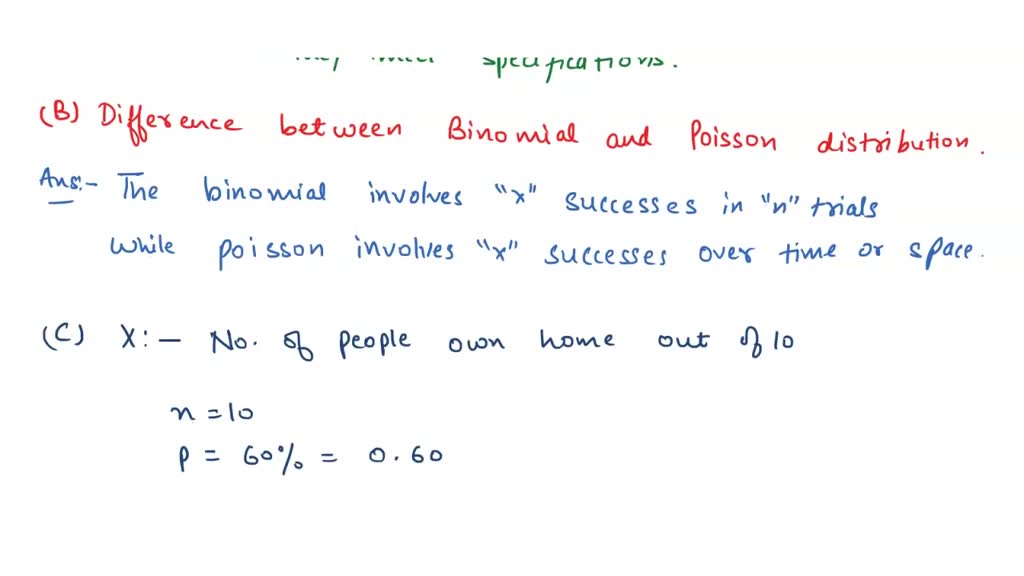 specifications.
(B) Difference between Binomial and Poisson distribution.
Ans:- The binomial involves "x" successes in "n" trials
while poisson involves "x" successes over time or space.
(C) X:- No. of people own home out of 10
n = 10
p = 60% = 0.60